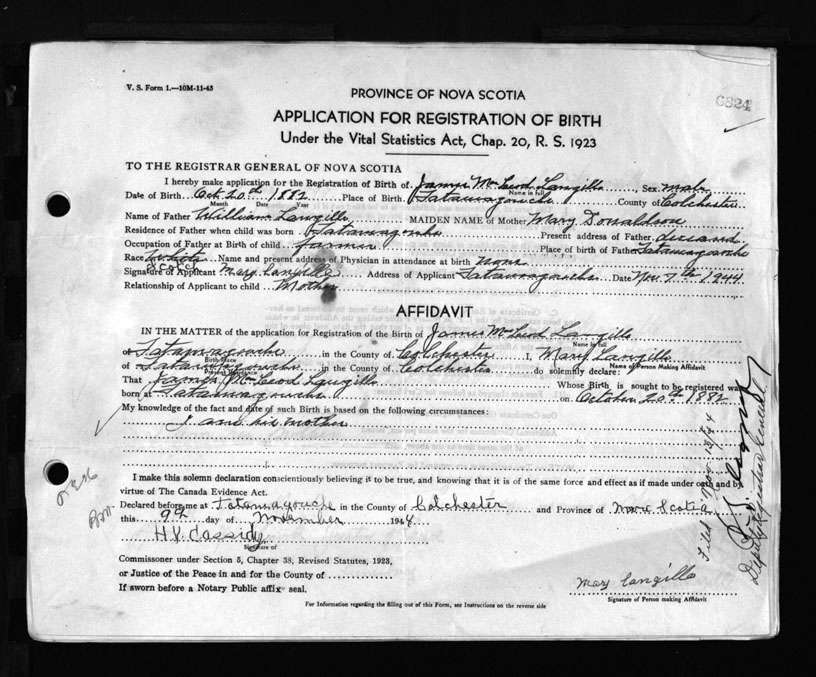 V. S. Form 1.—10M-11-43
PROVINCE OF NOVA SCOTIA
APPLICATION FOR REGISTRATION OF BIRTH
Under the Vital Statistics Act, Chap. 20, R. S. 1923
TO THE REGISTRAR GENERAL OF NOVA SCOTIA
I hereby make application for the Registration of Birth of James McLeod Langille, Sex male
Name in full
Date of Birth Oct 20th 1882 Place of Birth Tatamagouche County of Colchester
Month Date Year
Name of Father William Langille MAIDEN NAME of Mother Mary Donaldson
Residence of Father when child was born Tatamagouche Present address of Father deceased
Occupation of Father at Birth of child farmer Place of birth of Father Tatamagouche
Race White Name and present address of Physician in attendance at birth none
Scotch
Signature of Applicant Mary Langille Address of Applicant Tatamagouche Date Nov. 9th 1944
Relationship of Applicant to child Mother
AFFIDAVIT
IN THE MATTER of the application for Registration of the Birth of James McLeod Langille
Name in full
of Tatamagouche in the County of Colchester I, Mary Langille
Birth Place Name of Person Making Affidavit
of Tatamagouche in the County of Colchester do solemnly declare:
Present Residence
That James McLeod Langille Whose Birth is sought to be registered was
born at Tatamagouche on October 20th 1882
My knowledge of the fact and date of such Birth is based on the following circumstances:
I am his mother
I make this solemn declaration conscientiously believing it to be true, and knowing that it is of the same force and effect as if made under oath and by
virtue of The Canada Evidence Act.
Declared before me at Tatamagouche in the County of Colchester and Province of Nova Scotia
this 9th day of November 1944
H.V. Cassidy
Signature of
Commissioner under Section 5, Chapter 38, Revised Statutes, 1923,
or Justice of the Peace in and for the County of
If sworn before a Notary Public affix seal.
Mary Langille
Signature of Person making Affidavit
For Information regarding the filling out of this Form, see Instructions on the reverse side
Filed Nov. 13/44
Deputy Registrar General